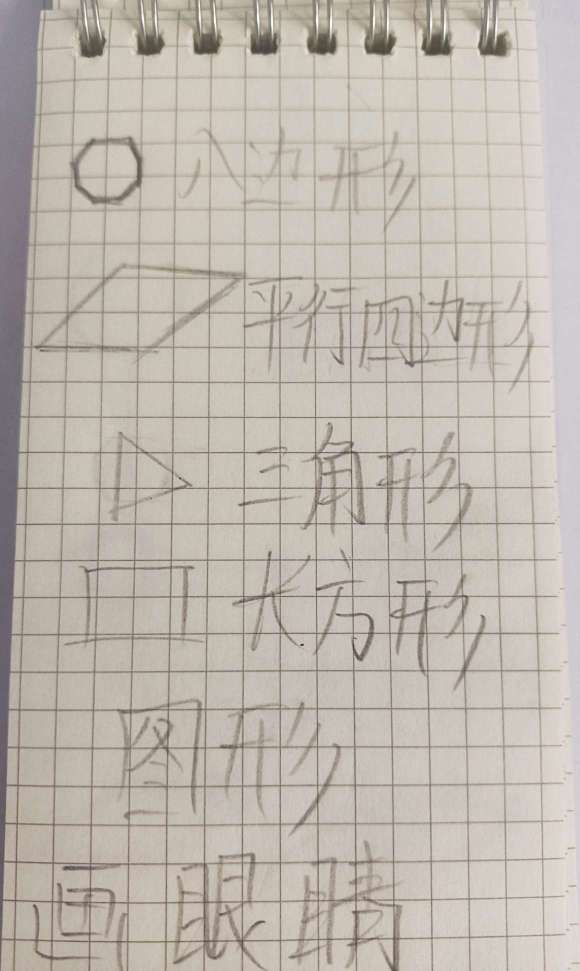 八边形
平行四边形
三角形
长方形
图形
画眼睛